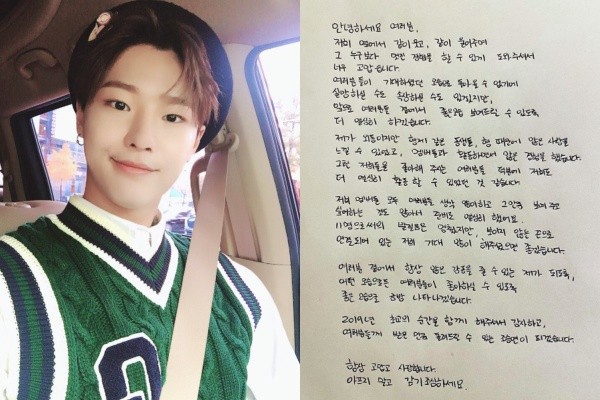 안녕하세요 여러분,
저희 옆에서 같이 웃고, 같이 울어주며
그 누구보다 멋진 경험을 할 수 있게 도와주셔서
너무 고맙습니다.
여러분들이 기대하셨던 모습으로 돌아올 수 없기에
실망하실 수도 속상하실 수도 있겠지만,
앞으로 여러분들 곁에서 좋은모습 보여드릴 수 있도록
더 열심히 하겠습니다.
제가 외동이지만 함께 같은 동생들, 형 때문에 많은 사랑을
느낄 수 있었고, 멤버들과 활동하면서 많은 경험을 했습니다.
그런 저희들을 좋아해 주는 여러분들 덕분에 저희도
더 열심히 활동 할 수 있었던 것 같습니다.
저희 멤버들 모두 여러분들 생각 많이하고 그만큼 보여주고
싶어하는 것도 많아서 준비도 열심히 했어요.
11명으로서의 발걸음은 멈췄지만, 보이지 않는 끈으로
연결되어 있는 저희 기대 많이 해주셨으면 좋겠습니다.
여러분 곁에서 항상 많은 감동을 줄 수 있는 제가 되도록,
어떤 모습으로든 여러분들이 좋아하실 수 있도록
좋은 모습으로 한번 나타나겠습니다.
2019년 최고의 순간을 함께 해주셔서 감사하고,
여러분들께 받은 만큼 돌려드릴 수 있는 사람이 되겠습니다.
항상 고맙고 사랑합니다.
아프지 말고 감기 조심하세요.